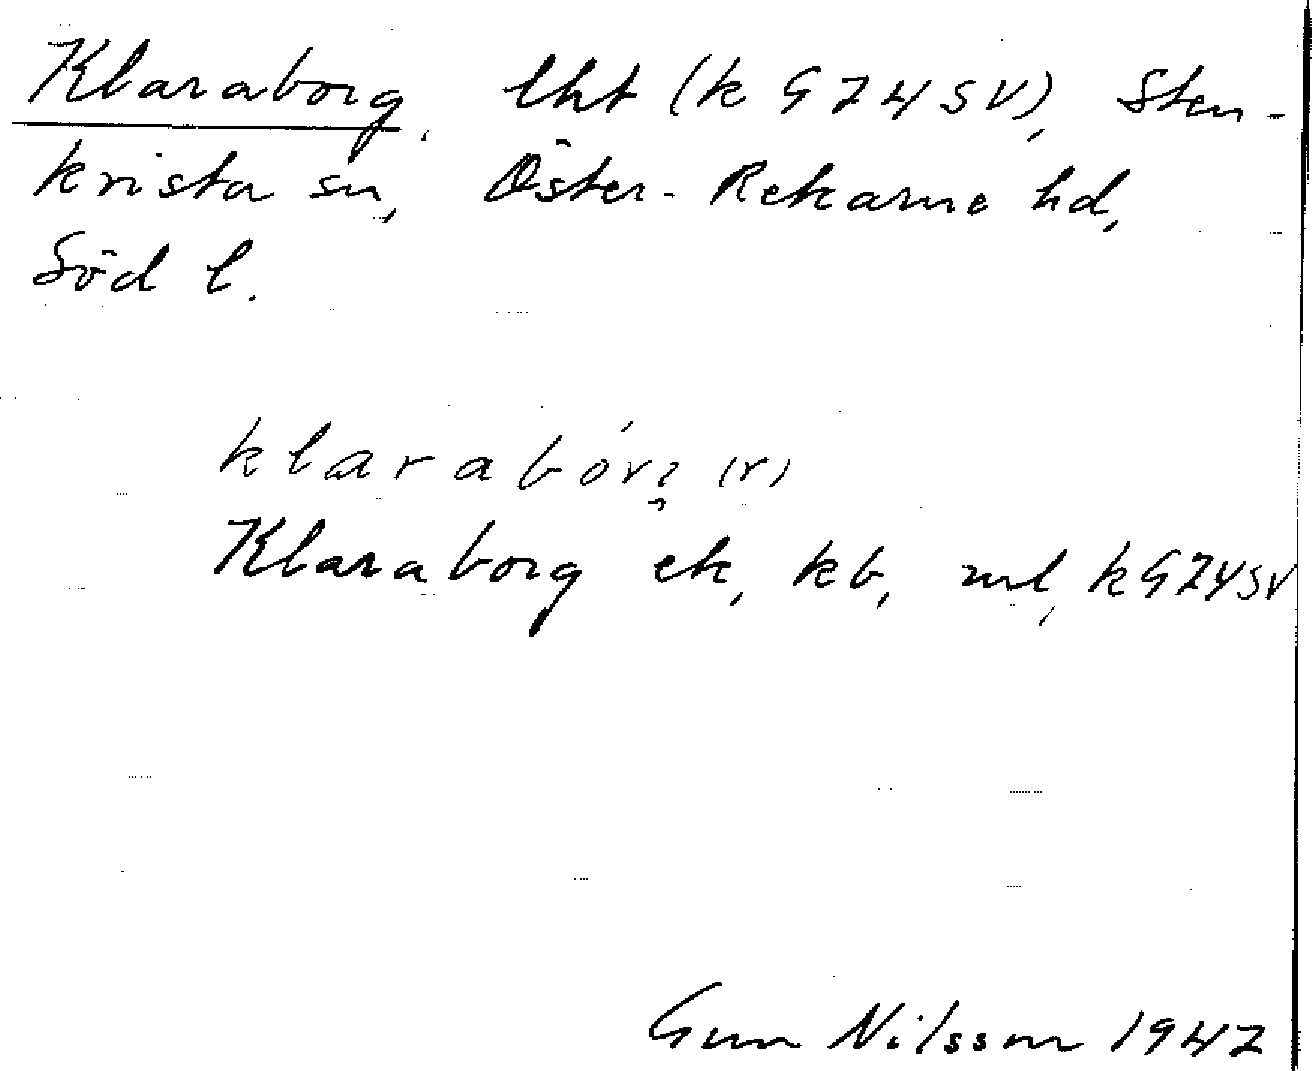 Klaraborg, lht (k G74SV), Sten-
krista sn, Öster-Rekarne hd,
Söd l.
klarabór (r)
Klaraborg ek, kb, ml, kG74SV
Gun Nilsson 1947